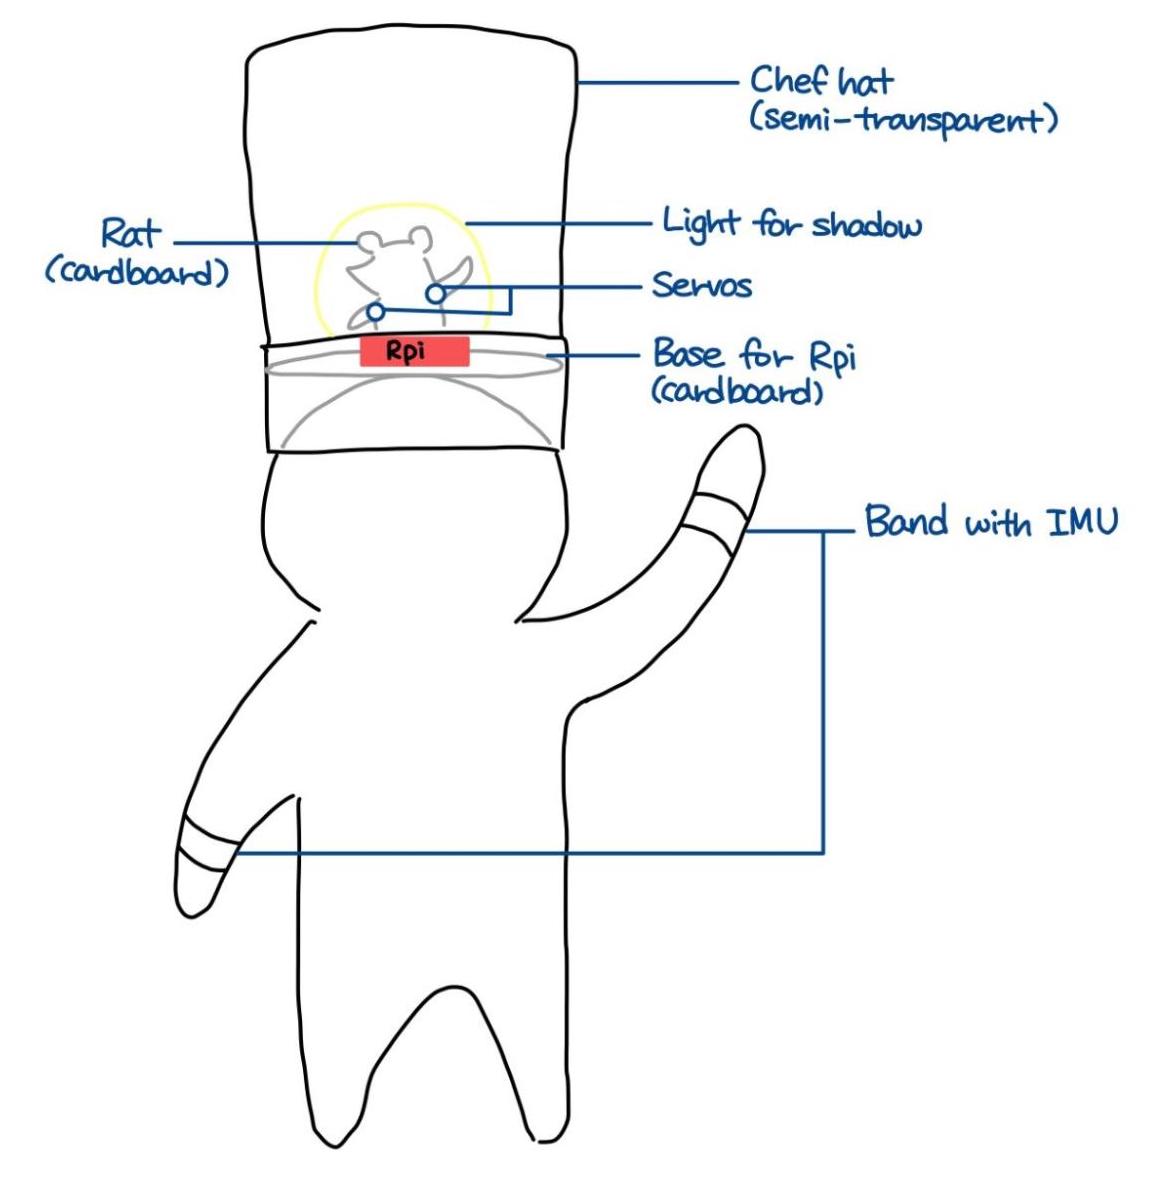 Chef hat
(semi-transparent)
Rat
(cardboard)
Light for shadow
Servos
Rpi
Base for Rpi
(cardboard)
Band with IMU